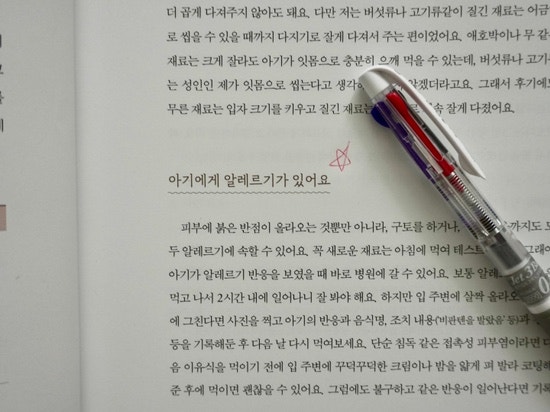 더 곱게 다져주지 않아도 돼요. 다만 저는 버섯류나 고기류같이 질긴 재료는 어금
로 씹을 수 있을 때까지 다지기로 잘게 다져서 주는 편이었어요. 애호박이나 무 같
재료는 크게 잘라도 아기가 잇몸으로 충분히 으깨 먹을 수 있는데, 버섯류나 고기
는 성인인 제가 잇몸으로 씹는다고 생각 않겠더라고요. 그래서 후기에
무른 재료는 입자 크기를 키우고 질긴 재료는 속 잘게 다졌어요.
아기에게 알레르기가 있어요
피부에 붉은 반점이 올라오는 것뿐만 아니라, 구토를 하거나, 까지도 모
두 알레르기에 속할 수 있어요. 꼭 새로운 재료는 아침에 먹여 테스트 그래야
아기가 알레르기 반응을 보였을 때 바로 병원에 갈 수 있어요. 보통 알레
먹고 나서 2시간 내에 일어나니 잘 봐야 해요. 하지만 입 주변에 살짝 올라오
에 그친다면 사진을 찍고 아기의 반응과 음식명, 조치 내용('비판텐을 발랐음' 등)과
등을 기록해둔 후 다음 날 다시 먹여보세요. 단순 침독 같은 접촉성 피부염이라면 다
음 이유식을 먹이기 전에 입 주변에 꾸덕꾸덕한 크림이나 밤을 얇게 펴 발라 코팅해
준 후에 먹이면 괜찮을 수 있어요. 그럼에도 불구하고 같은 반응이 일어난다면 기록